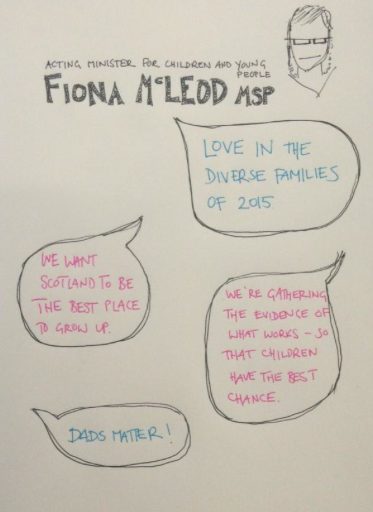 ACTING MINISTER FOR CHILDREN AND YOUNG
PEOPLE
FIONA McLEOD MSP
LOVE IN THE
DIVERSE FAMILIES
OF 2015
WE WANT
SCOTLAND TO BE
THE BEST PLACE
TO GROW UP.
WE'RE GATHERING
THE EVIDENCE OF
WHAT WORKS - SO
THAT CHILDREN
HAVE THE BEST
CHANCE.
DADS MATTER!